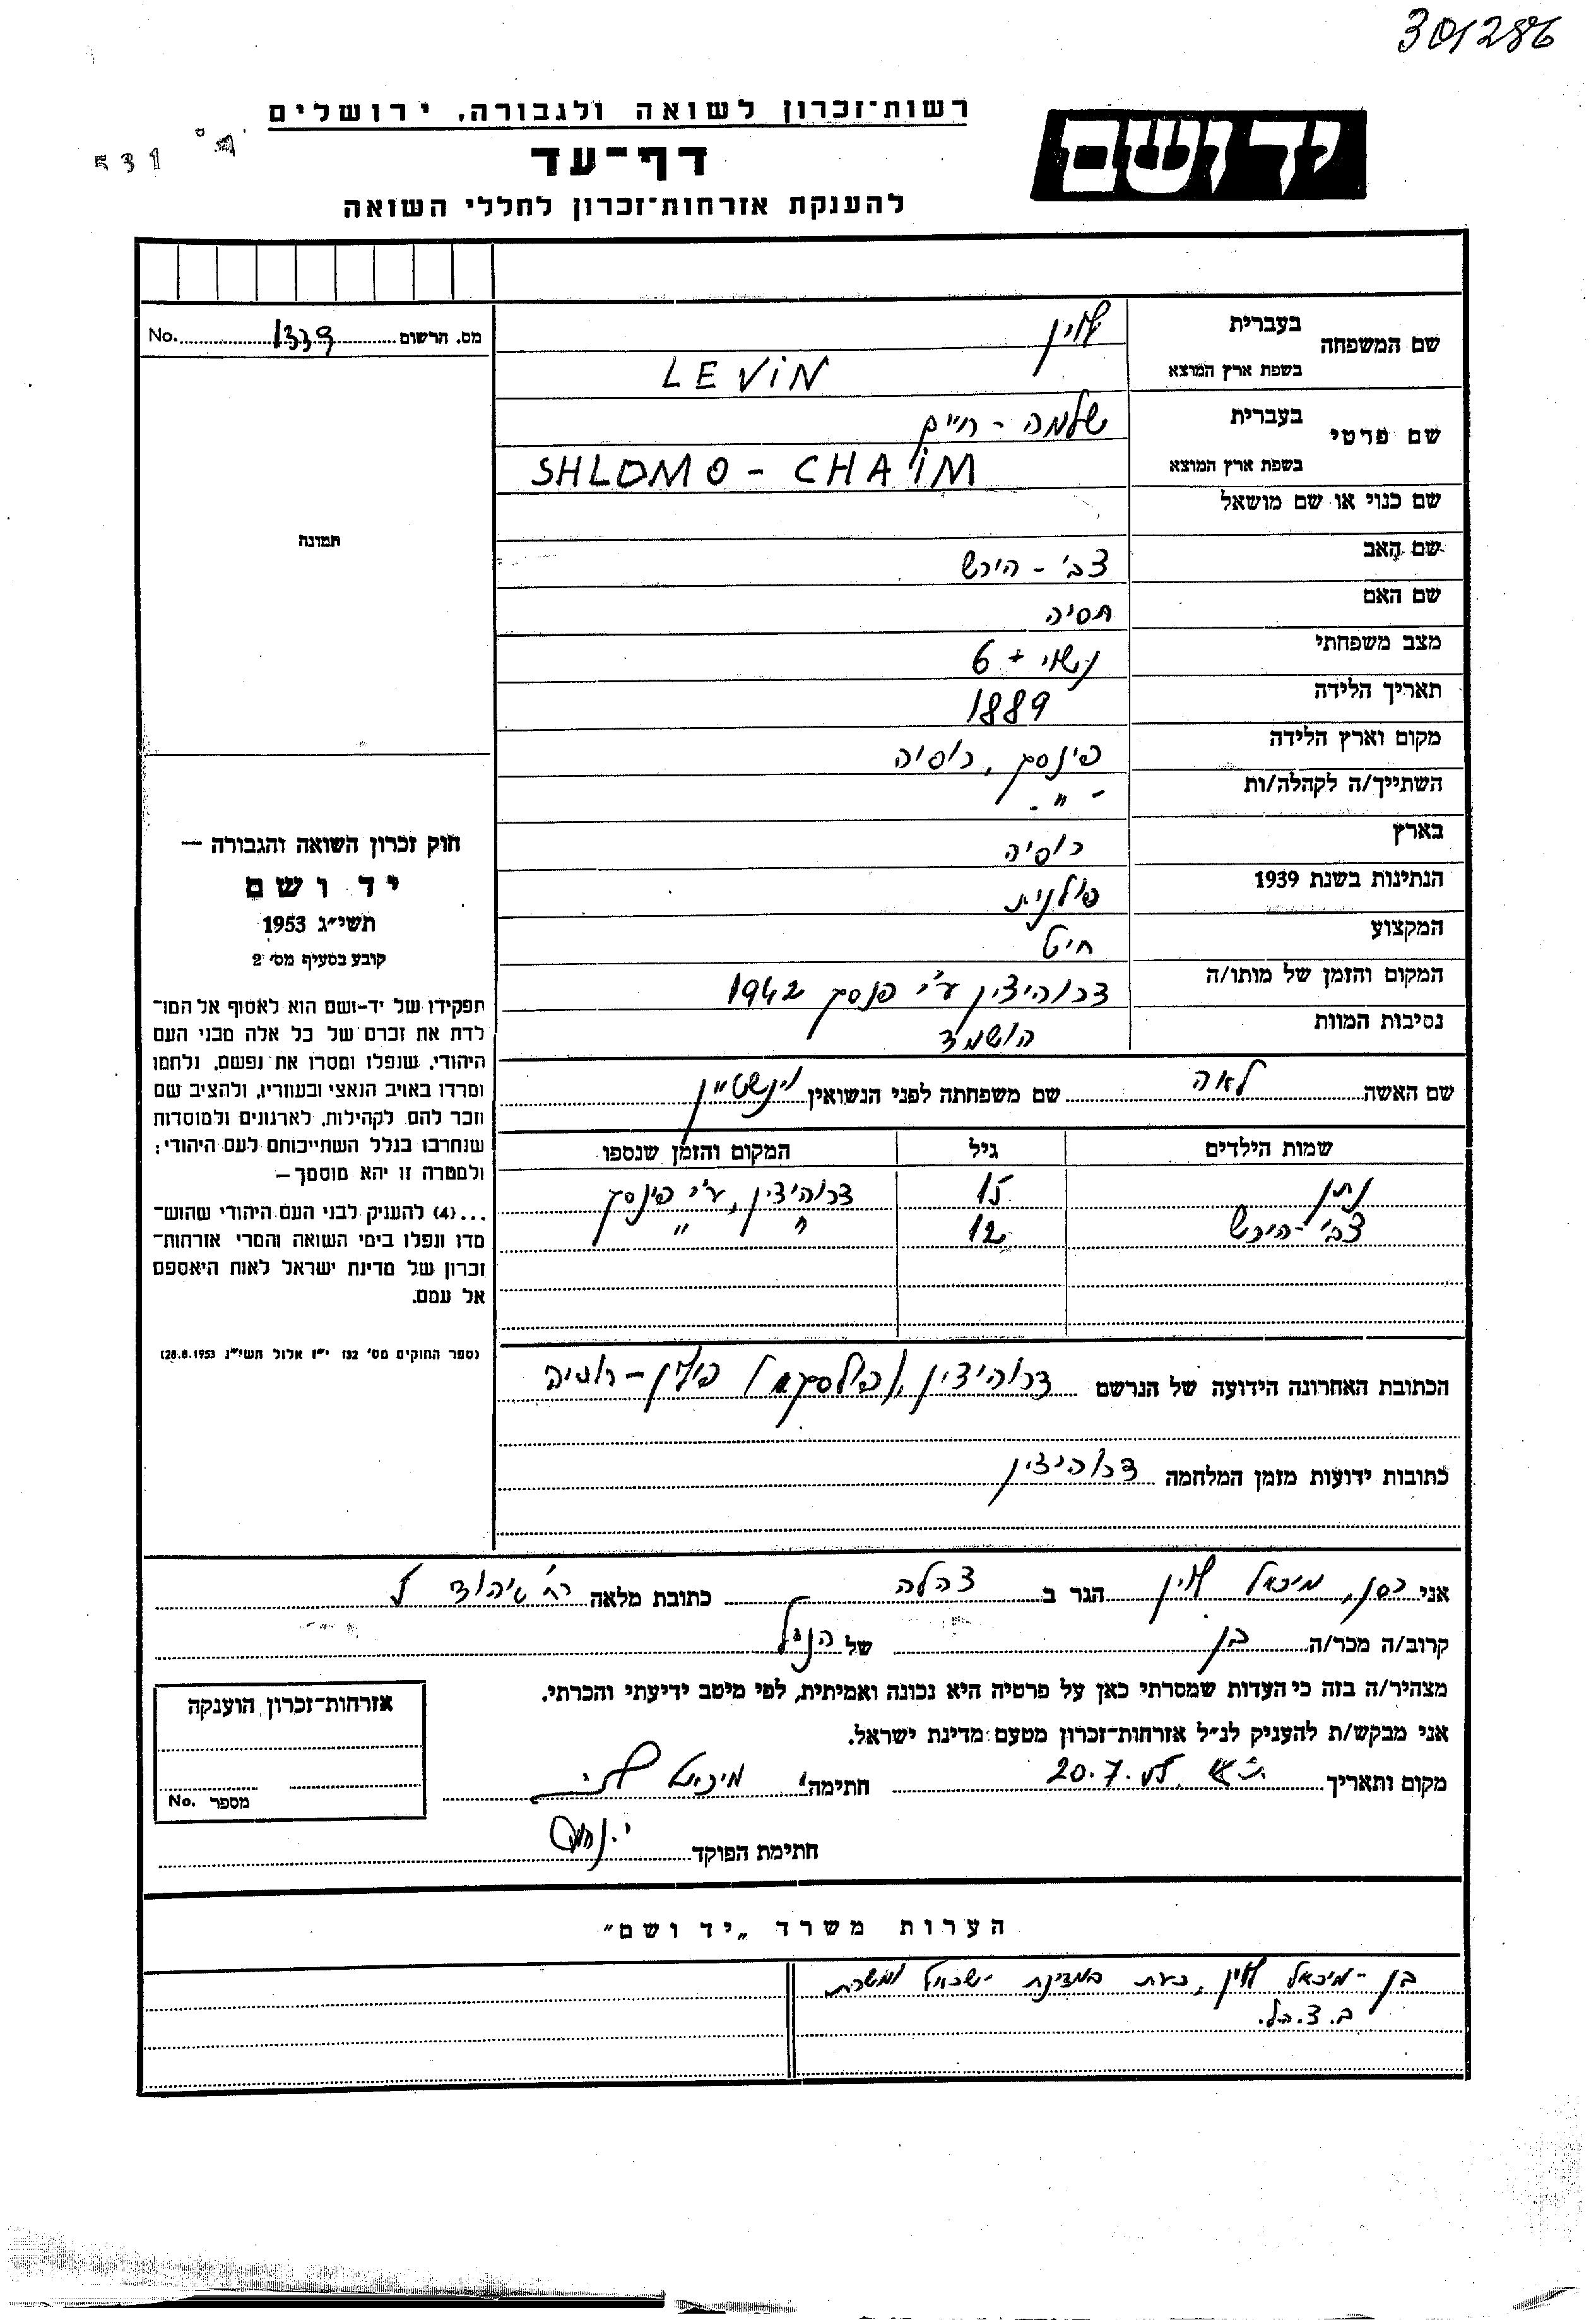 301286
רשות־זכרון לשואה ולגבורה, ירושלים
ידושם
דף־עד
531
להענקת אזרחות־זכרון לחללי השואה
שם המשפחה בעברית לוין
בשפת ארץ המוצא LEVIN
שם פרטי בעברית שלמה - חיים
בשפת ארץ המוצא SHLOMO - CHAIM
שם כנוי או שם מושאל
שם האב צבי - הירש
שם האם חסיה
מצב משפחתי נשוי + 6
תאריך הלידה 1889
מקום וארץ הלידה פינסק, רוסיה
השתייך/ה לקהלה/ות - " -
בארץ רוסיה
הנתינות בשנת 1939 פולנית
המקצוע חייט
המקום והזמן של מותו/ה דרוהיצין ע"י פנסק 1942
נסיבות המוות הושמד
שם האשה לאה שם משפחתה לפני הנשואין וינשטיין
שמות הילדים גיל המקום והזמן שנספו
נתן 15 דרוהיצין, ע"י פינסק
צבי - הירש 12 " " "
הכתובת האחרונה הידועה של הנרשם דרוהיצין, (פולסקא) פולין - רוסיה
כתובות ידועות מזמן המלחמה דרוהיצין
מס. הרשום 1339 No.
תמונה
חוק זכרון השואה והגבורה —
יד ושם
תשי״ג 1953
קובע בסעיף מס׳ 2
תפקידו של יד-ושם הוא לאסוף אל המו־
לדת את זכרם של כל אלה מבני העם
היהודי, שנפלו ומסרו את נפשם, נלחמו
ומרדו באויב הנאצי ובעוזריו, ולהציב שם
וזכר להם לקהילות, לארגונים ולמוסדות
שנחרבו בגלל השתייכותם לעם היהודי;
ולמטרה זו יהא מוסמך —
...(4) להעניק לבני העם היהודי שהוש־
מדו ונפלו בימי השואה והמרי אזרחות־
זכרון של מדינת ישראל לאות היאספם
אל עמם.
(ספר החוקים מס׳ 132 י״ז אלול תשי״ג 28.8.1953)
אני רסן, מיכאל לוין הגר ב צהלה כתובת מלאה רח' 7
קרוב/ה מכר/ה בן של הנ"ל
מצהיר/ה בזה כי העדות שמסרתי כאן על פרטיה היא נכונה ואמיתית, לפי מיטב ידיעתי והכרתי.
אני מבקש/ת להעניק לנ״ל אזרחות־זכרון מטעם מדינת ישראל.
מקום ותאריך 20.7. חתימה מיכאל לוין
חתימת הפוקד
אזרחות־זכרון הוענקה
מספר No.
הערות משרד „יד ושם"
בן - מיכאל לוין, כעת במדינת ישראל ומשרת
ב. צ.ה.ל.